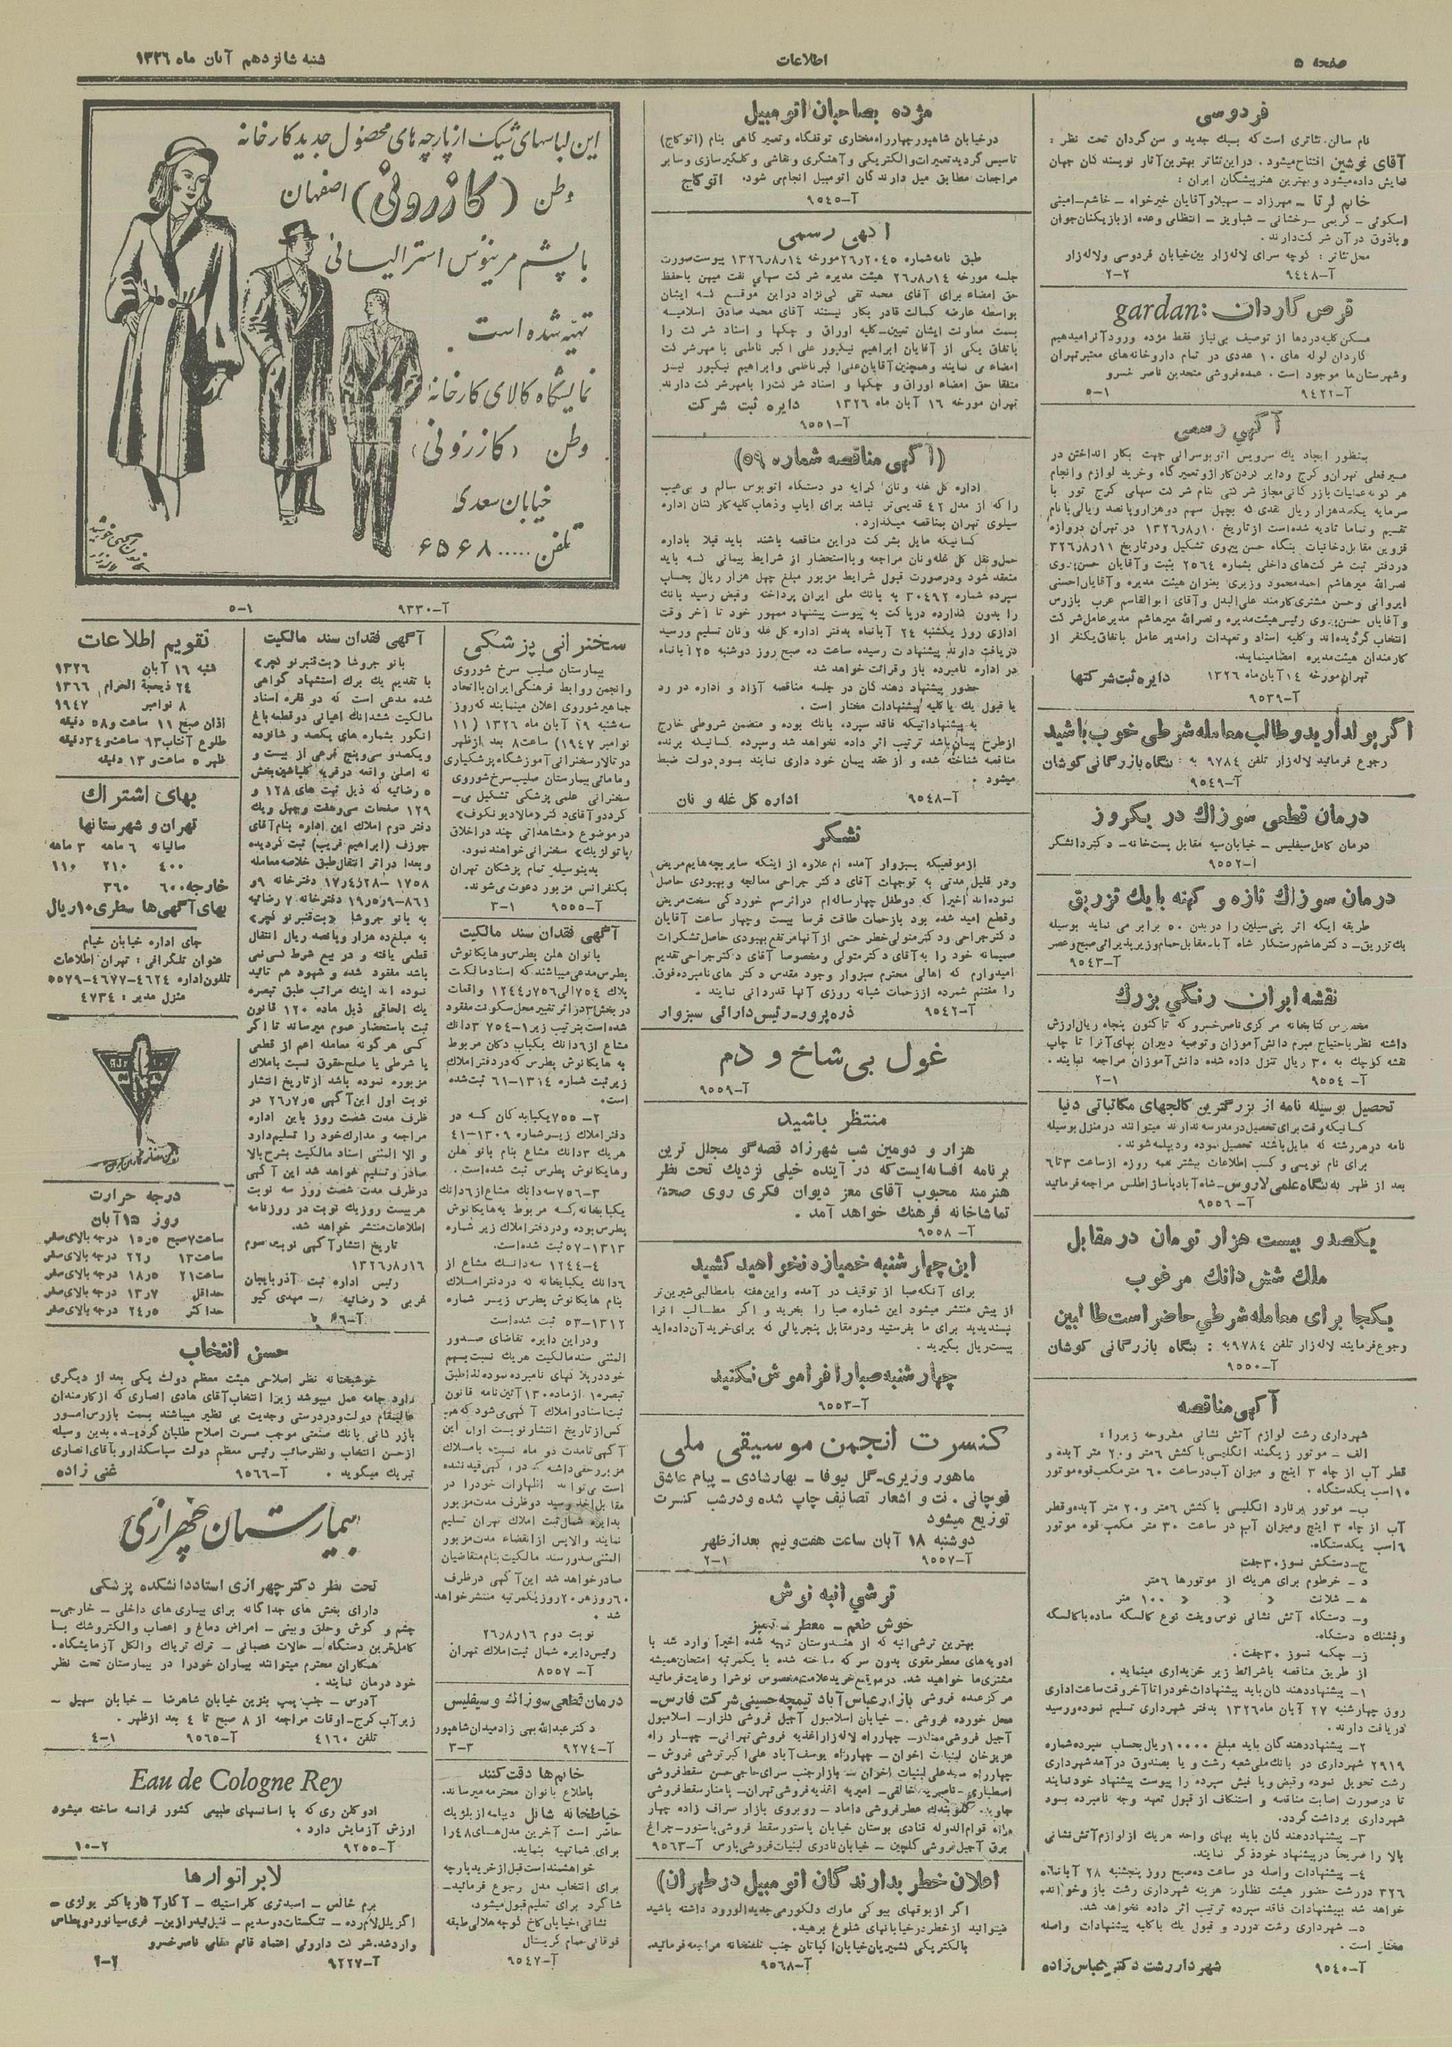 صفحه ۵
اطلاعات
شنبه شانزدهم آبان ماه ۱۳۲۶
فردوسی
نام سالن تئاتری است که بسبک جدید و سن گردان تحت نظر :
آقای نوشین افتتاح میشود . در این تئاتر بهترین آثار نویسندگان جهان
نمایش داده میشود و بهترین هنرپیشگان ایران :
خانم لرتا - مهرزاد - سهیلا و آقایان خیرخواه - خاشع - امینی
اسکوئی - کریمی - رخشانی - شباویز - انتظامی وعده از بازیکنان جوان
و باذوق در آن شرکت دارند .
محل تئاتر : کوچه سرای لاله‌زار بین خیابان فردوسی و لاله‌زار
آ-۹۴۴۸ ۲-۲
قرص گاردان : gardan
مسکن کلیه دردها از توصیف بی‌نیاز فقط مژده ورود آنرا میدهیم
گاردان لوله های ۱۰ عددی در تمام داروخانه های معتبر تهران
و شهرستان‌ها موجود است . عمده فروشی متحدین ناصر خسرو
آ-۹۴۲۲ ۱-۵
آگهی رسمی
بمنظور ایجاد یک سرویس اتوبوسرانی جهت بکار انداختن در
مسیر فعلی تهران و کرج و دایر کردن گاراژ و تعمیرگاه و خرید لوازم و انجام
هر گونه عملیات بازرگانی مجاز شرکتی بنام شرکت سهامی کرج تور با
سرمایه یکصد هزار ریال نقدی که بچهل سهم دو هزار و پانصد ریالی با نام
تقسیم و تماما تادیه شده است از تاریخ ۱۳۲۶/۸/۱۰ در تهران دروازه
قزوین مقابل دخانیات بنگاه حسن پیروی تشکیل و در تاریخ ۳۲۶/۸/۱۱
در دفتر ثبت شرکت‌های داخلی بشماره ۲۵۶۴ بثبت و آقایان حسن پیروی
نصرالله میرهاشم احمد محمود وزیری بعنوان هیئت مدیره و آقایان احسنی
ایروانی و حسن مشتری کارمند علی‌البدل و آقای ابوالقاسم عرب بازرس
و آقایان حسن پیروی رئیس هیئت مدیره و نصرالله میرهاشم مدیر عامل شرکت
انتخاب گردیده‌اند و کلیه اسناد و تعهدات را مدیر عامل باتفاق یکنفر از
کارمندان هیئت مدیره امضا مینمایند.
تهران مورخه ۱۴ آبان ماه ۱۳۲۶ دایره ثبت شرکتها
آ-۹۵۳۹
اگر پول دارید و طالب معامله شرطی خوب باشید
رجوع فرمائید لاله زار تلفن ۹۷۸۴ به : بنگاه بازرگانی کوشان
آ-۹۵۴۹
درمان قطعی سوزاك در یکروز
درمان کامل سیفلیس - خیابان سپه مقابل پست‌خانه - دکتر دانشگر
آ-۹۵۵۲
درمان سوزاك تازه و کهنه با یك تزریق
طریقه اینکه اثر پنی‌سیلین را در بدن ۵۰ برابر می نماید بوسیله
یك تزریق - دکتر هاشم رستکار شاه آباد مقابل حمام وزیر پذیرائی صبح و عصر
آ-۹۵۴۳
نقشه ایران رنگی بزرگ
مخصوص کتابخانه مرکزی ناصر خسرو که تا کنون پنجاه ریال ارزش
داشته نظر باحتیاج مبرم دانش‌آموزان و توصیه دبیران بهای آنرا تا چاپ
نقشه کوچك به ۳۰ ریال تنزل داده شده دانش‌آموزان مراجعه نمایند .
آ-۹۵۵۴ ۱-۲
تحصیل بوسیله نامه از بزرگترین کالجهای مکاتباتی دنیا
کسانیکه وقت برای تحصیل در مدرسه ندارند میتوانند در منزل بوسیله
نامه در هر رشته که مایل باشند تحصیل نموده و دیپلمه شوند .
برای نام نویسی و کسب اطلاعات بیشتر همه روزه از ساعت ۳ تا ۶
بعد از ظهر به بنگاه علمی لاروس - شاه آباد پاساژ اطلس مراجعه فرمائید
آ-۹۵۵۶
یکصد و بیست هزار تومان در مقابل
ملك شش دانك مرغوب
یکجا برای معامله شرطی حاضر است طالبین
رجوع فرمایند لاله زار تلفن ۹۷۸۴ به : بنگاه بازرگانی کوشان
آ-۹۵۵۰
آگهی مناقصه
شهرداری رشت لوازم آتش نشانی مشروحه زیر را :
الف - موتور زیگمند انگلیسی با کشش ۶ متر و ۲۰ متر آبده و
قطر آب از چاه ۳ اینچ و میزان آب در ساعت ۶۰ متر مکعب قوه موتور
۱۰ اسب یکدستگاه .
ب - موتور برنارد انگلیسی با کشش ۶ متر و ۲۰ متر آبده و قطر
آب از چاه ۳ اینچ و میزان آب در ساعت ۳۰ متر مکعب قوه موتور
۶ اسب یکدستگاه.
ج - دستکش نسوز ۳۰ جفت
د - خرطوم برای هر یک از موتورها ۶ متر
ه - شلانت « « « ۱۰۰ متر
و - دستگاه آتش نشانی نوس ویفت نوع کالسگه ساده با کالسگه
و فشنگ ۵ دستگاه.
ز - چکمه نسوز ۳۰ جفت .
از طریق مناقصه باشرائط زیر خریداری مینماید .
۱ - پیشنهاددهندگان باید پیشنهادات خود را تا آخر وقت ساعت اداری
روز چهارشنبه ۲۷ آبان ماه ۱۳۲۶ بدفتر شهرداری تسلیم نموده و رسید
دریافت دارند .
۲ - پیشنهاد دهندگان باید مبلغ ۱۰۰۰۰ ریال بحساب سپرده شماره
۲۹۱۹ شهرداری در بانك ملی شعبه رشت و یا بصندوق درآمد شهرداری
رشت تحویل نموده و قبض و یا فیش سپرده را پیوست پیشنهاد خود نمایند
تا در صورت اصابت مناقصه و استنکاف از قبول تعهد وجه نامبرده بسود
شهرداری برداشت گردد.
۳ - پیشنهاد دهندگان باید بهای واحد هر یك از لوازم آتش نشانی
بالا را صریحاً در پیشنهاد خود ذکر نمایند.
۴ - پیشنهادات واصله در ساعت ده صبح روز پنجشنبه ۲۸ آبانماه
۳۲۶ در رشت حضور هیئت نظارت هزینه شهرداری رشت باز و خوانده
خواهد شد پیشنهادات فاقد سپرده ترتیب اثر داده نخواهد شد.
۵ - شهرداری رشت در رد و قبول یك یا کلیه پیشنهادات واصله
مختار است .
آ-۹۵۴۰ شهردار رشت دکتر عباس زاده
مژده بصاحبان اتومبیل
در خیابان شاهپور چهار راه مختاری توقفگاه و تعمیرگاهی بنام (اتوکاج)
تاسیس گردید تعمیرات و الکتریکی و آهنگری و نقاشی و گلگیرسازی و سایر
مراجعات مطابق میل دارندگان اتومبیل انجام می شود. اتوکاج
آ-۹۵۴۵
آگهی رسمی
طبق نامه شماره ۲۶/۲۰۴۵ مورخه ۱۳۲۶/۸/۱۴ پیوست صورت
جلسه مورخه ۲۶/۸/۱۴ هیئت مدیره شرکت سهامی نفت میهن با حفظ
حق امضاء برای آقای محمد تقی لی‌نژاد در این موقع که ایشان
بواسطه عارضه کسالت قادر بکار نیستند آقای محمد صادق اسلامیه
بسمت معاونت ایشان تعیین - کلیه اوراق و چکها و اسناد شرکت را
باتفاق یکی از آقایان ابراهیم نیکپور علی اکبر ناظمی با مهر شرکت
امضاء می نمایند و همچنین آقایان علی اکبر ناظمی و ابراهیم نیکپور نیز
متفقا حق امضاء اوراق و چکها و اسناد شرکت را با مهر شرکت دارند.
تهران مورخه ۱۶ آبان ماه ۱۳۲۶ دایره ثبت شرکت
آ-۹۵۵۱
(آگهی مناقصه شماره ۵۹)
اداره کل غله و نان کرایه دو دستگاه اتوبوس سالم و بی عیب
را که از مدل ۴۲ قدیمی‌تر نباشد برای ایاب و ذهاب کلیه کارکنان اداره
سیلوی تهران بمناقصه میگذارد.
کسانیکه مایل بشرکت در این مناقصه باشند باید قبلا باداره
حمل و نقل کل غله و نان مراجعه و با استحضار از شرایط پیمانی که باید
منعقد شود و در صورت قبول شرایط مزبور مبلغ چهل هزار ریال بحساب
سپرده شماره ۳۰۴۹۲ به بانك ملی ایران پرداخته و قبض رسید بانك
را بدون گذارده در پاکت به پیوست پیشنهاد ممهور خود تا آخر وقت
اداری روز یکشنبه ۲۴ آبانماه بدفتر اداره کل غله و نان تسلیم و رسید
دریافت دارند پیشنهادات رسیده ساعت ده صبح روز دوشنبه ۲۵ آبانماه
در اداره نامبرده باز و قرائت خواهد شد
حضور پیشنهاد دهندگان در جلسه مناقصه آزاد و اداره در رد
یا قبول یك یا کلیه پیشنهادات مختار است .
به پیشنهاداتیکه فاقد سپرده بانك بوده و متضمن شروطی خارج
از طرح پیمان باشد ترتیب اثر داده نخواهد شد و سپرده کسانیکه برنده
مناقصه شناخته شده و از عقد پیمان خود داری نمایند بسود دولت ضبط
میشود .
آ-۹۵۴۸ اداره کل غله و نان
تشکر
از موقعیکه بسبزوار آمده ام علاوه از اینکه سایر بچه هایم مریض
و در قلیل مدتی به توجهات آقای دکتر جراحی معالجه و بهبودی حاصل
نموده‌اند اخیرا که دو طفل چهار ساله‌ام در اثر سم خوردگی سخت مریض
و قطع امید شده بود با زحمات طاقت فرسا بیست و چهار ساعت آقایان
دکتر جراحی و دکتر متولی خطر حتمی از آنها مرتفع بهبودی حاصل تشکرات
صمیمانه خود را به آقای دکتر متولی و مخصوصا آقای دکتر جراحی تقدیم
امیدوارم که اهالی محترم سبزوار وجود مقدس دکتر های نامبرده فوق
را مغتنم شمرده از زحمات شبانه روزی آنها قدردانی نمایند .
آ-۹۵۴۲ ذره پرور - رئیس دارائی سبزوار
غول بی شاخ و دم
آ-۹۵۵۹
منتظر باشید
هزار و دومین شب شهرزاد قصه‌گو مجلل ترین
برنامه افسانه ایست که در آینده خیلی نزدیك تحت نظر
هنرمند محبوب آقای معز دیوان فکری روی صحنه
تماشاخانه فرهنك خواهد آمد .
آ-۹۵۵۸
این چهارشنبه خمیازه نخواهید کشید
برای آنکه صبا از توقیف در آمده و این هفته با مطالبی شیرین‌تر
از پیش منتشر میشود این شماره صبا را بخرید و اگر مطالب آنرا
نپسندیدید برای ما بفرستید و در مقابل پنج ریالی که برای خرید آن داده‌اید
بیست ریال بگیرید .
چهارشنبه صبا را فراموش نکنید
آ-۹۵۵۳
کنسرت انجمن موسیقی ملی
ماهور وزیری - گل نیوفا - بهار شادی - پیام عاشق
قوچانی . نت و اشعار تصانیف چاپ شده و در شب کنسرت
توزیع میشود
دوشنبه ۱۸ آبان ساعت هفت و نیم بعد از ظهر
آ-۹۵۵۷ ۱-۲
ترشی انبه نوش
خوش طعم - معطر - تمیز
بهترین ترشی انبه که از هندوستان تهیه شده اخیراً وارد شد با
ادویه‌های معطر مقوی بدون سرکه ساخته شده با یکمرتبه امتحان همیشه
مشتری ما خواهید شد. در موقع خرید علامت مخصوص نوش را رعایت فرمائید
مرکز عمده فروشی بازار عباس آباد تیمچه حسینی شرکت فارس -
محل خورده فروشی . - خیابان اسلامبول آجیل فروشی دلزار - اسلامبول
آجیل فروشی ممتاز - چهارراه لاله زار اغذیه فروشی تهرانی - چهار راه
عزیزخان لبنیات اخوان - چهارراه یوسف آباد علی اکبر ترشی فروش -
چهارراه سید علی لبنیات اخوان - بازار جنب سرای حاجی حسن سقط فروشی
اصطباری - ناصریه خالقی - امیریه اغذیه فروشی تهران - پامنار سقط فروشی
جاوید - گلوبندك عطر فروشی داماد - روبروی بازار صراف زاده چهار
راه قوام الدوله قنادی بوستان خیابان پاستور سقط فروشی پاستور - چراغ
برق آجیل فروشی گلچین - خیابان نادری لبنیات فروشی پارس آ-۹۵۶۳
اعلان خطر بدارندگان اتومبیل در طهران)
اگر از بوقهای بیوکی مارك دلکو رمی جدید الورود داشته باشید
میتوانید از خطر در خیابانهای شلوغ برهید .
بالکتریکی نشیریان خیابان اکباتان جنب تلفنخانه مراجعه فرمائید.
آ-۹۵۶۸
این لباسهای شیک از پارچه های محصول جدید کارخانه
وطن (کازرونی) اصفهان
با پشم مرینوس استرالیائی
تهیه شده است .
نمایشگاه کالای کارخانه
وطن (کازرونی)
خیابان سعدی
تلفن ..... ۶۵۶۸
آ-۹۳۳۰ ۱-۵
سخنرانی پزشکی
بیمارستان صلیب سرخ شوروی
و انجمن روابط فرهنگی ایران با اتحاد
جماهیر شوروی اعلان مینمایند که روز
سه شنبه ۱۹ آبان ماه ۱۳۲۶ (۱۱
نوامبر ۱۹۴۷) ساعت ۸ بعد از ظهر
در تالار سخنرانی آموزشگاه پزشکیاری
و مامائی بیمارستان صلیب سرخ شوروی
سخنرانی علمی پزشکی تشکیل می-
گردد و آقای دکتر «مالادیونکوف»
در موضوع «مشاهداتی چند در اخلاق
پاتولژیك» سخنرانی خواهند نمود.
بدینوسیله تمام پزشکان تهران
بکنفرانس مزبور دعوت می‌شوند.
آ-۹۵۵۵ ۱-۳
آگهی فقدان سند مالکیت
بانوان هلن پطرس و هایکانوش
پطرس مدعی میباشند که اسناد مالکیت
پلاك ۷۵۴ الی ۷۵۶ و ۱۲۴۴ واقعات
در بخش ۳ در اثر تغییر محل سکونت مفقود
شده است بترتیب زیر ۱-۷۵۴ ۳ دانك
مشاع از ۶ دانك یکباب دکان مربوط
به هایکانوش پطرس که در دفتر املاك
زیر ثبت شماره ۱۳۱۴-۶۱ ثبت شده
است.
۲-۷۵۵ یکباب دکان که در
دفتر املاك زیر شماره ۱۳۰۹-۴۱
هر یك ۳ دانك مشاع بنام بانو هلن
و هایکانوش پطرس ثبت شده است .
۳-۷۵۶ سه دانك مشاع از ۶ دانك
یکبابخانه که مربوط به هایکانوش
پطرس بوده و در دفتر املاك زیر شماره
۱۳۱۳-۵۷ ثبت شده است.
۴-۱۲۴۴ سه دانك مشاع از
۶ دانك یکبابخانه که در دفتر املاك
بنام هایکانوش پطرس زیر شماره
۱۳۱۲-۵۳ ثبت شده است
و در این دایره تقاضای صدور
المثنی سند مالکیت هر یك نسبت بسهم
خود در پلاك‌های نامبرده نموده‌اند طبق
تبصره ۱۰ از ماده ۱۳۰ آئین نامه قانون
ثبت اسناد و املاك آگهی می‌شود که هر
کس از تاریخ انتشار نوبت اول این
آگهی تا مدت دو ماه نسبت باملاك
نمایند والا پس از انقضاء مدت مزبور
المثنی صدور سند مالکیت بنام متقاضیان
صادر خواهد شد این آگهی در ظرف
۶۰ روز هر ۲۰ روز یکمرتبه منتشر خواهد
شد .
نوبت دوم ۲۶/۸/۱۶
رئیس دایره شمال ثبت املاك تهران
آ-۸۵۵۷
درمان قطعی سوزاك و سیفلیس
دکتر عبدالله بهی زاد میدان شاهپور
آ-۹۲۷۴ ۳-۳
خانم‌ها دقت کنند
باطلاع بانوان محترمه میرساند.
خیاطخانه شانل دیپلمه از بلژیك
حاضر است آخرین مدل‌های ۴۸ را
برای شما تهیه بنماید.
خواهشمند است قبل از خرید پارچه
برای انتخاب مدل رجوع فرمائید -
شاگرد برای تعلیم قبول میشود.
نشانی : خیابان کاخ کوچه هلالی طبقه
فوقانی حمام کریستال
آ-۹۵۴۷
آگهی فقدان سند مالکیت
بانو جروشا «بت قنبر نو کچر»
با تقدیم یك برك استشهاد گواهی
شده مدعی است که دو فقره اسناد
مالکیت ششدانك اعیانی دو قطعه باغ
انگور بشماره های یکصد و شانزده
و یکصد و سی و پنج فرعی از بیست و
نه اصلی واقعه در قریه گلپاشین بخش
۵ رضائیه که ذیل ثبت های ۱۲۸ و
۱۲۹ صفحات سی و هفت و چهل و یك
دفتر دوم املاك این اداره بنام آقای
جوزف (ابراهیم غریب) ثبت گردیده
و بعدا در اثر انتقال طبق خلاصه معامله
۱۷۵۸-۱۷/۴/۲۸ دفترخانه ۹ و
۸۶۱-۱۹/۵/۹ دفترخانه ۷ رضائیه
به بانو جروشا «بت قنبر نو کچر»
به مبلغ ده هزار و پانصد ریال انتقال
قطعی یافته و در بیع شرط کسی نمی
باشد مفقود شده و شهود هم تائید
نموده اند اینك مراتب طبق تبصره
یك الحاقی ذیل ماده ۱۲۰ قانون
ثبت باستحضار عموم میرساند تا اگر
کسی هر گونه معامله اعم از قطعی
یا شرطی یا صلح حقوق نسبت باملاك
مزبوره نموده باشد از تاریخ انتشار
نوبت اول این آگهی ۲۶/۷/۵ در
ظرف مدت شصت روز باین اداره
مراجعه و مدارك خود را تسلیم دارد
و الا المثنی اسناد مالکیت بشرح بالا
صادر و تسلیم خواهد شد این آگهی
در ظرف مدت شصت روز سه نوبت
هر بیست روز یك نوبت در روزنامه
اطلاعات منتشر خواهد شد.
تاریخ انتشار آگهی نوبت سوم
۱۳۲۶/۸/۱۶
رئیس اداره ثبت آذربایجان
غربی «رضائیه» - مهدی گیو
تقویم اطلاعات
شنبه ۱۶ آبان ۱۳۲۶
۲۴ ذیحجة الحرام ۱۳۶۶
۸ نوامبر ۱۹۴۷
اذان صبح ۱۱ ساعت و ۵۸ دقیقه
طلوع آفتاب ۱۳ ساعت و ۳۴ دقیقه
ظهر ۵ ساعت و ۱۳ دقیقه
بهای اشتراك
تهران و شهرستانها
سالیانه ۶ ماهه ۳ ماهه
۴۰۰ ۲۱۰ ۱۱۰
خارجه ۶۰۰ ۳۶۰
بهای آگهی ها سطری ۱۰ ریال
جای اداره خیابان خیام
عنوان تلگرافی : تهران اطلاعات
تلفون اداره ۴۶۲۴-۴۶۷۷-۵۵۷۹
منزل مدیر : ۴۷۳۴
درجه حرارت
روز ۱۵ آبان
ساعت ۷ صبح ۱۵/۵ درجه بالای صفر
ساعت ۱۳ ۲۲/ درجه بالای صفر
ساعت ۲۱ ۱۸/۵ درجه بالای صفر
حداقل ۱۳/۷ درجه بالای صفر
حداکثر ۲۴/۵ درجه بالای صفر
حسن انتخاب
خوشبختانه نظر اصلاحی هیئت معظم دولت یکی بعد از دیگری
دارد جامه عمل میپوشد زیرا انتخاب آقای هادی انصاری که از کارمندان
عالیمقام دولت و در درستی و جدیت بی نظیر میباشند بسمت بازرس امور
بازرگانی بانك صنعتی موجب مسرت اصلاح طلبان گردیده بدین وسیله
از حسن انتخاب و نظر صائب رئیس معظم دولت سپاسگذار و بآقای انصاری
تبریك میگوید . آ-۹۵۶۶ غنی زاده
بیمارستان چهرازی
تحت نظر دکتر چهرازی استاد دانشکده پزشکی
دارای بخش های جداگانه برای بیماری های داخلی - خارجی -
چشم و گوش و حلق و بینی - امراض دماغ و اعصاب و الکتروشك با
کامل‌ترین دستگاه - حالات عصبانی - ترك تریاك و الکل آزمایشگاه.
همکاران محترم میتوانند بیماران خود را در بیمارستان تحت نظر
خود درمان نمایند .
آدرس - جنب پمپ بنزین خیابان شاهرضا - خیابان سهیل -
زیر آب کرج - اوقات مراجعه از ۸ صبح تا ۴ بعد از ظهر .
تلفن ۴۱۶۰ آ-۹۵۶۵ ۱-۴
Eau de Cologne Rey
ادو کلن ری که با اسانسهای طبیعی کشور فرانسه ساخته میشود
ارزش آزمایش دارد .
آ-۹۲۵۵ ۲-۱۰
لابراتوارها
برم خالص - اسیدتری کلراستیك - آگار آگار باکتر یولژی -
اگزیلل لام رده - تنگستات دوسدیم - فنیل ئیدرازین - فری سیانور دو پطاس
وارد شد. شرکت داروئی اعتماد قائم مقامی ناصر خسرو
آ-۹۲۲۷ ۲-۲